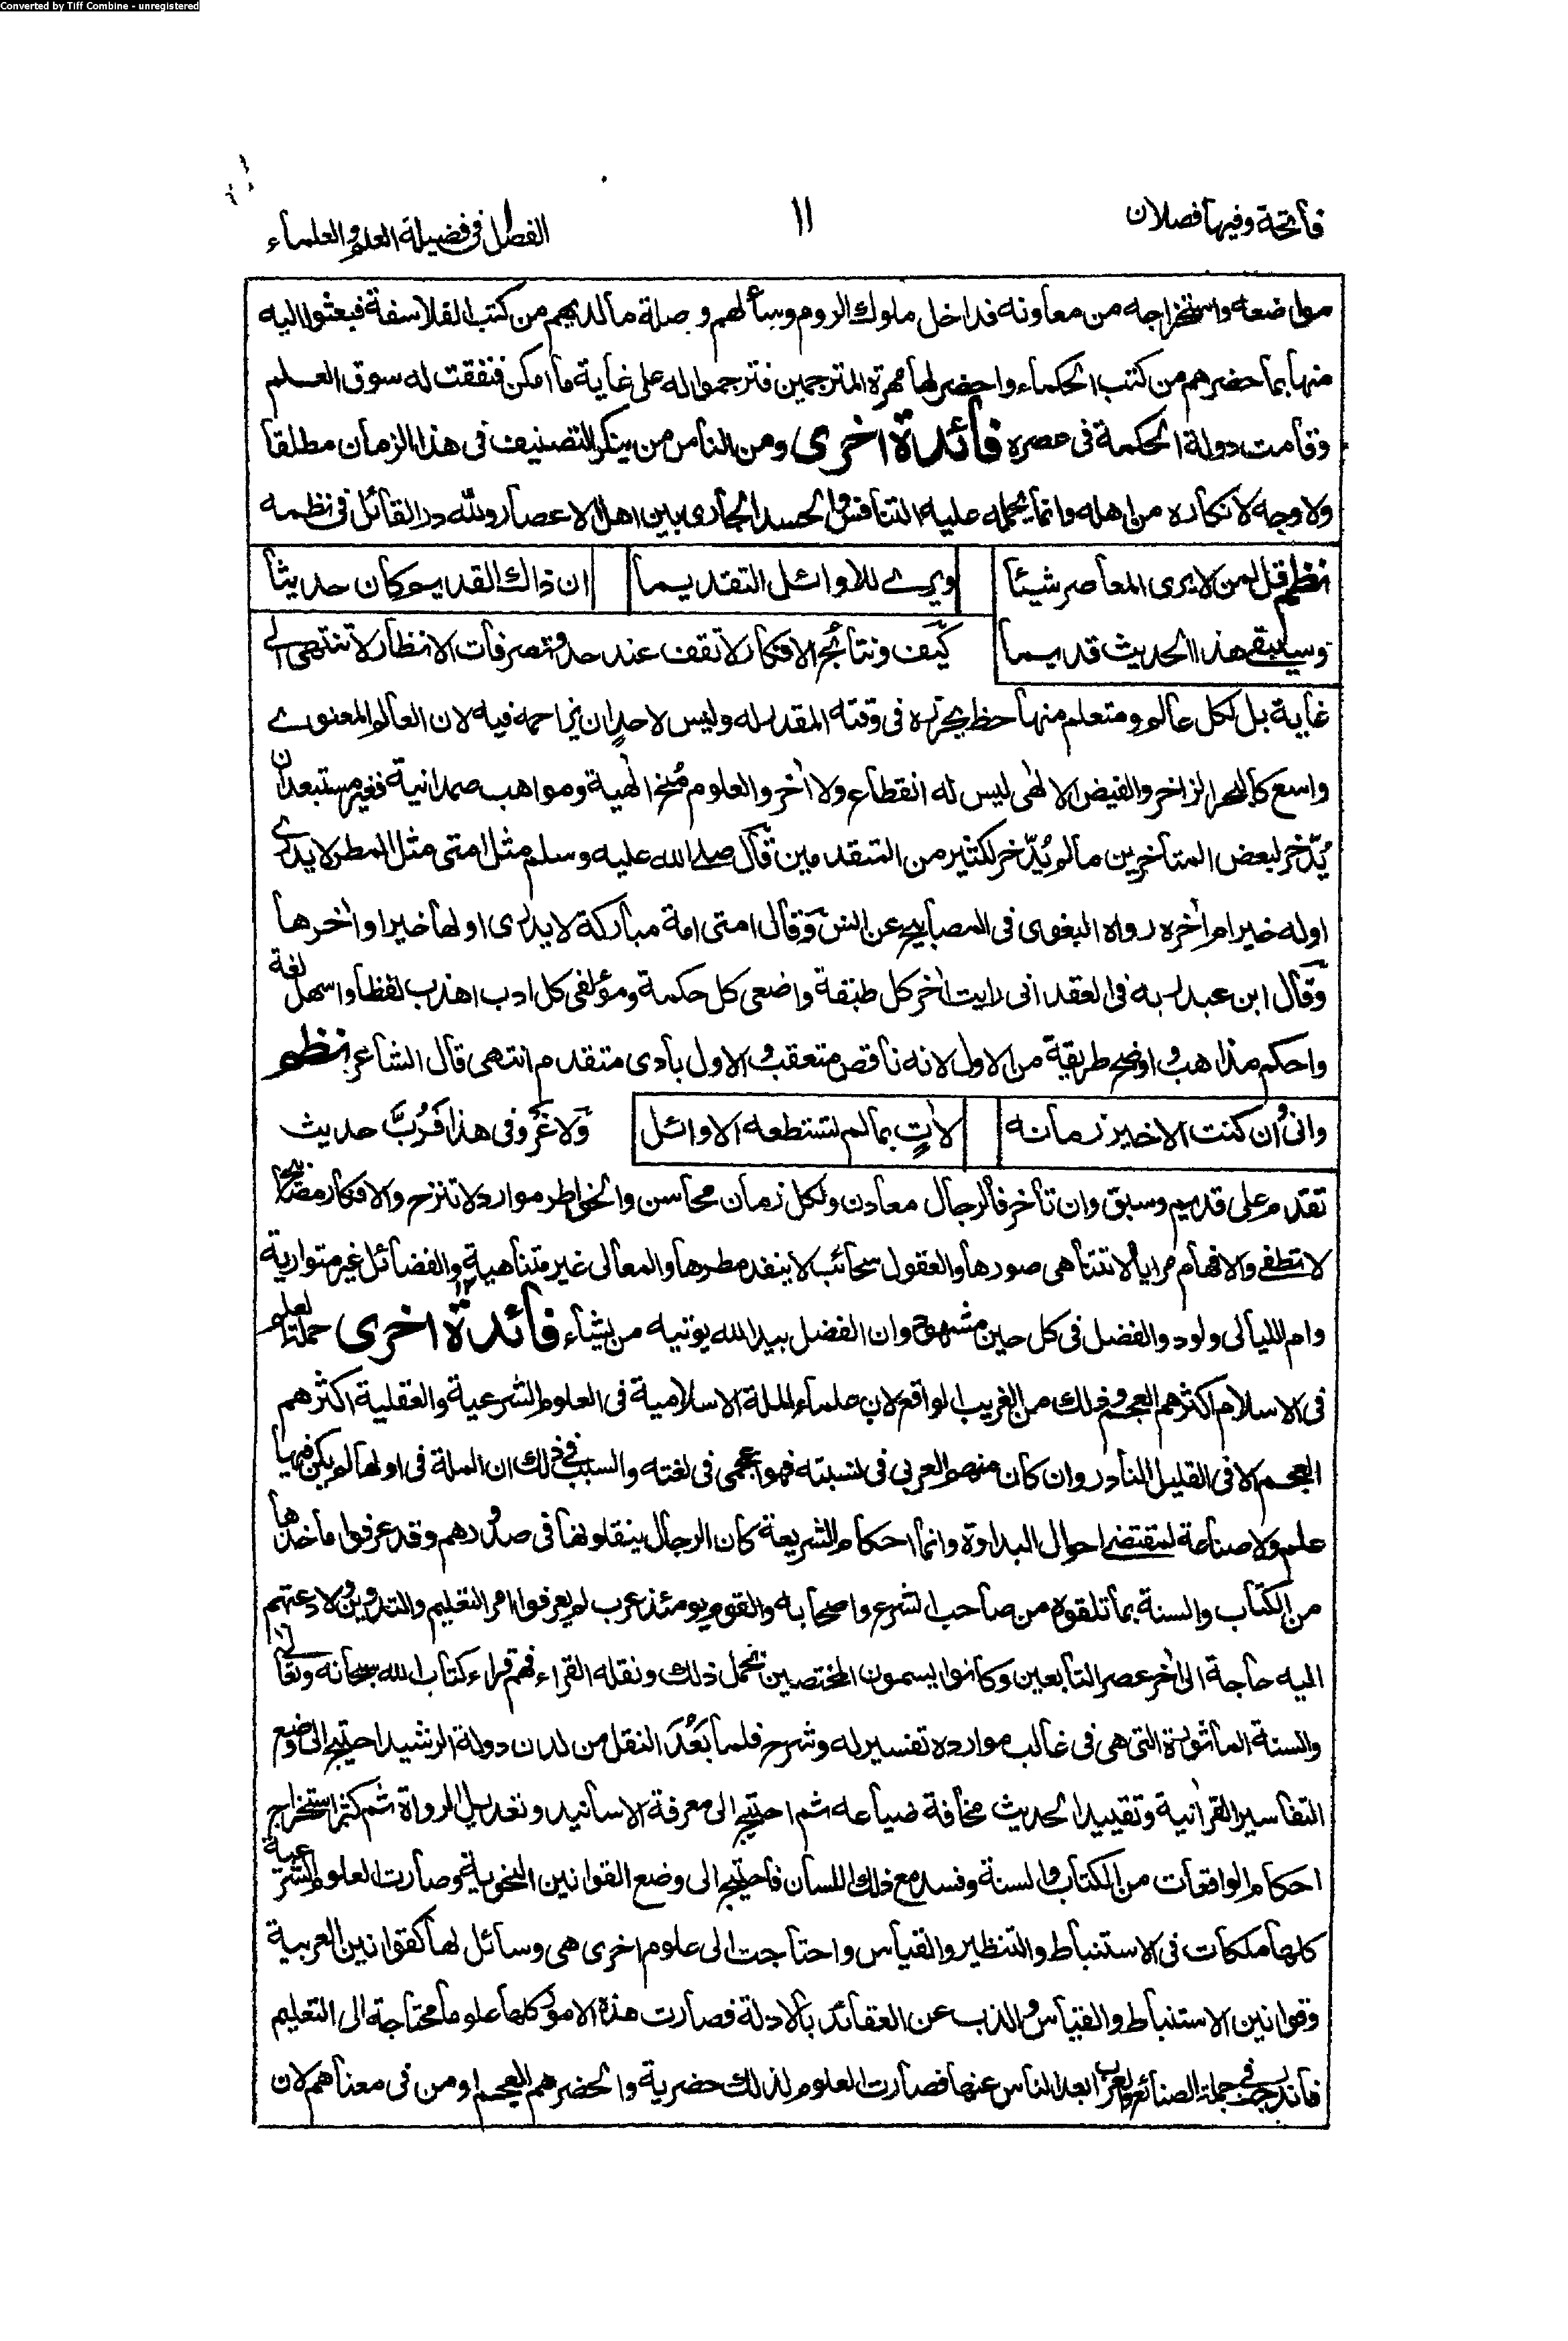 Converted by Tiff Combine - unregistered
فاتحة وفيها فصلان
١١
الفصل ١ فى فضيلة العلم والعلماء
مواضعه واستخراجه من معاونه فداخل ملوك الروم وسألهم وصلة ما لديهم من كتب الفلاسفة فبعثوا اليه
منها بما حضرهم من كتب الحكماء واحضر لها مهرة المترجمين فترجموا له على غاية ما امكن فنفقت له سوق العلم
وقامت دولة الحكمة فى عصره فائدة اخرى ومن الناس من ينكر التصنيف فى هذا الزمان مطلقا
ولا وجه لانكاره من اهله وانما يحمله عليه التنافس والحسد الجارى بين اهل الاعصار ولله در القائل فى نظمه
نظم قل لمن لا يرى المعاصر شيئا ويرے للاوائل التقديما ان ذاك القديم كان حديثا
وسيبقے هذا الحديث قديما كيف ونتائج الافكار لا تقف عند حد وتصرفات الانظار لا تنتهى الے
غاية بل لكل عالم ومتعلم منها حظ يحرزه فى وقته المقدر له وليس لاحد ان يزاحمه فيه لان العالم المعنوے
واسع كالبحر الزاخر والفيض الالهى ليس له انقطاع ولا اٰخر والعلوم مُنح الٰهية ومواهب صمدانية فغير مستبعد ان
يُدّخر لبعض المتأخرين ما لم يُدّخر لكثير من المتقدمين قال صلے الله عليه وسلم مثل امتى مثل المطر لا يدرے
اوله خير ام اٰخره رواه البغوى فى المصابيح عن انس وقال امتى امة مباركة لا يدرى اولها خير او اٰخرها
وقال ابن عبد ربه فى العقد انى رايت اٰخر كل طبقة واضعى كل حكمة ومؤلفى كل ادب اهذب لفظا واسهل لغة
واحكم مذاهب واوضح طريقة من الاول لانه ناقص متعقب والاول بادى متقدم انتهى قال الشاعر نظم
وانى وان كنت الاخير زمانه لاٰتٍ بما لم تستطعه الاوائل ولا غرو فى هذا فَرُبَّ حديث
تقدم على قديم وسبق وان تأخر فالرجال معادن ولكل زمان محاسن والخواطر موارد لا تنزح والافكار مصابيح
لا تطفے والافهام مرايا لا تتناهى صورها والعقول سحائب لا ينفد مطرها والمعالى غير متناهية والفضائل غير متوارية
وام الليالى ولود والفضل فى كل حين مشهود وان الفضل بيد الله يوتيه من يشاء فائدة اخرى حملة العلم
فى الاسلام اكثرهم العجم وذلك من الغريب الواقع لان علماء الملة الاسلامية فى العلوم الشرعية والعقلية اكثرهم
العجم الا فى القليل النادر وان كان منهم العربى فى نسبته فهو اعجمى فى لغته والسبب فى ذلك ان الملة فى اولها لم يكن فيها
علم ولا صناعة لمقتضے احوال البداوة وانما احكام الشريعة كان الرجال ينقلونها فى صدورهم وقد عرفوا ماخذها
من الكتاب والسنة بما تلقوه من صاحب الشرع واصحابه والقوم يومئذ عرب لم يعرفوا امر التعليم والتدوين ولا دعتهم
اليه حاجة الى اٰخر عصر التابعين وكانوا يسمون المختصين بحمل ذلك ونقله القراء فهم قراء كتاب الله سبحانه وتعالے
والسنة المأثورة التى هى فى غالب موارده تفسير له وشرح فلما بَعُدَ النقل من لدن دولة الرشيد احتيج الى وضع
التفاسير القراٰنية وتقييد الحديث مخافة ضياعه ثم احتيج الى معرفة الاسانيد وتعديل الرواة ثم كثر استخراج
احكام الواقعات من الكتاب والسنة وفسد مع ذلك اللسان فاحتيج الى وضع القوانين النحوية وصارت العلوم الشرعية
كلها ملكات فى الاستنباط والتنظير والقياس واحتاجت الى علوم اخرى هى وسائل لها كقوانين العربية
وقوانين الاستنباط والقياس والذب عن العقائد بالادلة فصارت هذه الامور كلها علوما محتاجة الى التعليم
فاندرجت فى جملة الصنائع والعرب ابعد الناس عنها فصارت العلوم لذلك حضرية والحضر هم العجم او من فى معناهم لان